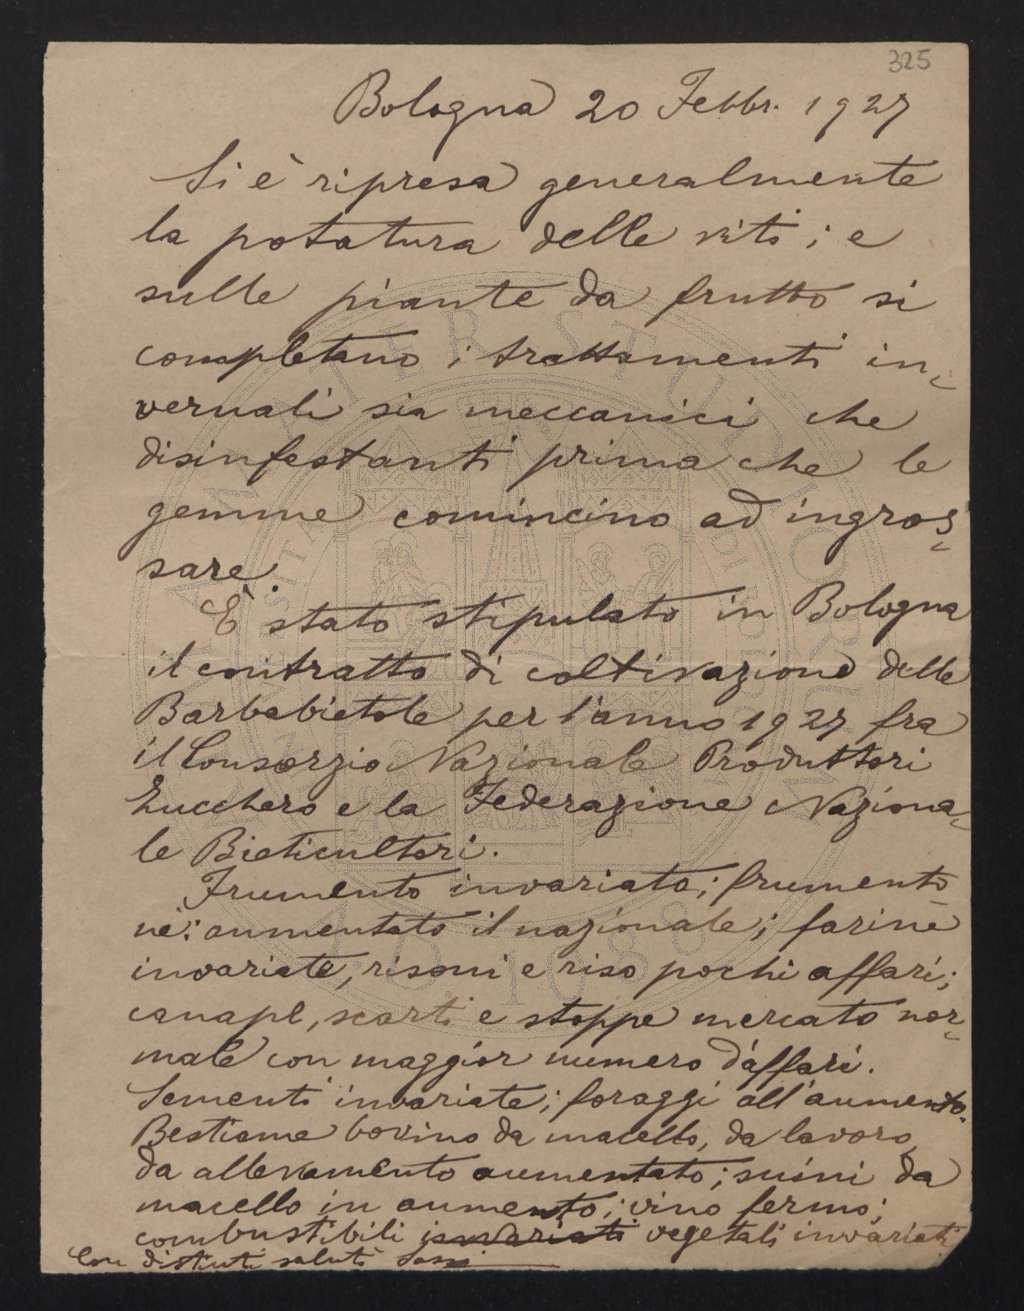 325
Bologna 20 Febbr. 1927
Si è ripresa generalmente
la potatura delle viti; e
sulle piante da frutto si
completano i trattamenti in-
vernali sia meccanici che
disinfestanti prima che le
gemme comincino ad ingros-
sare.
È stato stipulato in Bologna
il contratto di coltivazione delle
Barbabietole per l'anno 1927 fra
il Consorzio Nazionale Produttori
Zucchero e la Federazione Naziona-
le Bieticultori.
Frumento invariato; frumento
ne: aumentato il nazionale; farine
invariate, risoni e riso pochi affari;
canape, scarti e stoppe mercato nor-
male con maggior numero d'affari.
Sementi invariate; foraggi all'aumento.
Bestiame bovino da macello, da lavoro,
da allevamento aumentato; suini da
macello in aumento; vino fermo;
combustibili invariati vegetali invariati
Con distinti saluti
ALMA MATER STUDIORUM
A.D. 1088